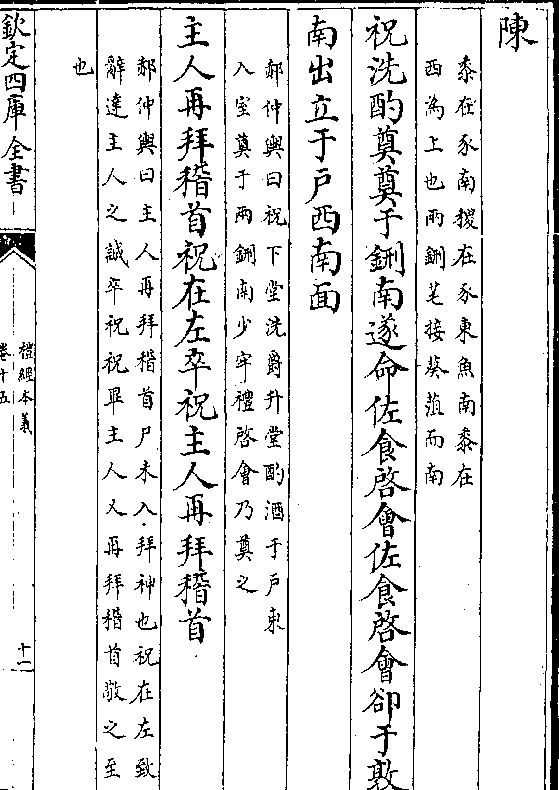 陳
黍在豕南稷在豕東魚南黍在
西為上也兩鉶芼接葵菹而南
祝洗酌奠奠于鉶南遂命佐食啓會佐食啓會卻于敦
南出立于戸西南面
郝仲輿曰祝下堂洗爵升堂酌酒于戸東
入室奠于兩鉶南少牢禮啓會乃奠之
主人再拜稽首祝在左卒祝主人再拜稽首
郝仲輿曰主人再拜稽首尸未入拜神也祝在左致
辭達主人之誠卒祝祝畢主人又再拜稽首敬之至
也
欽定四庫全書
禮經本義
卷十五
十一